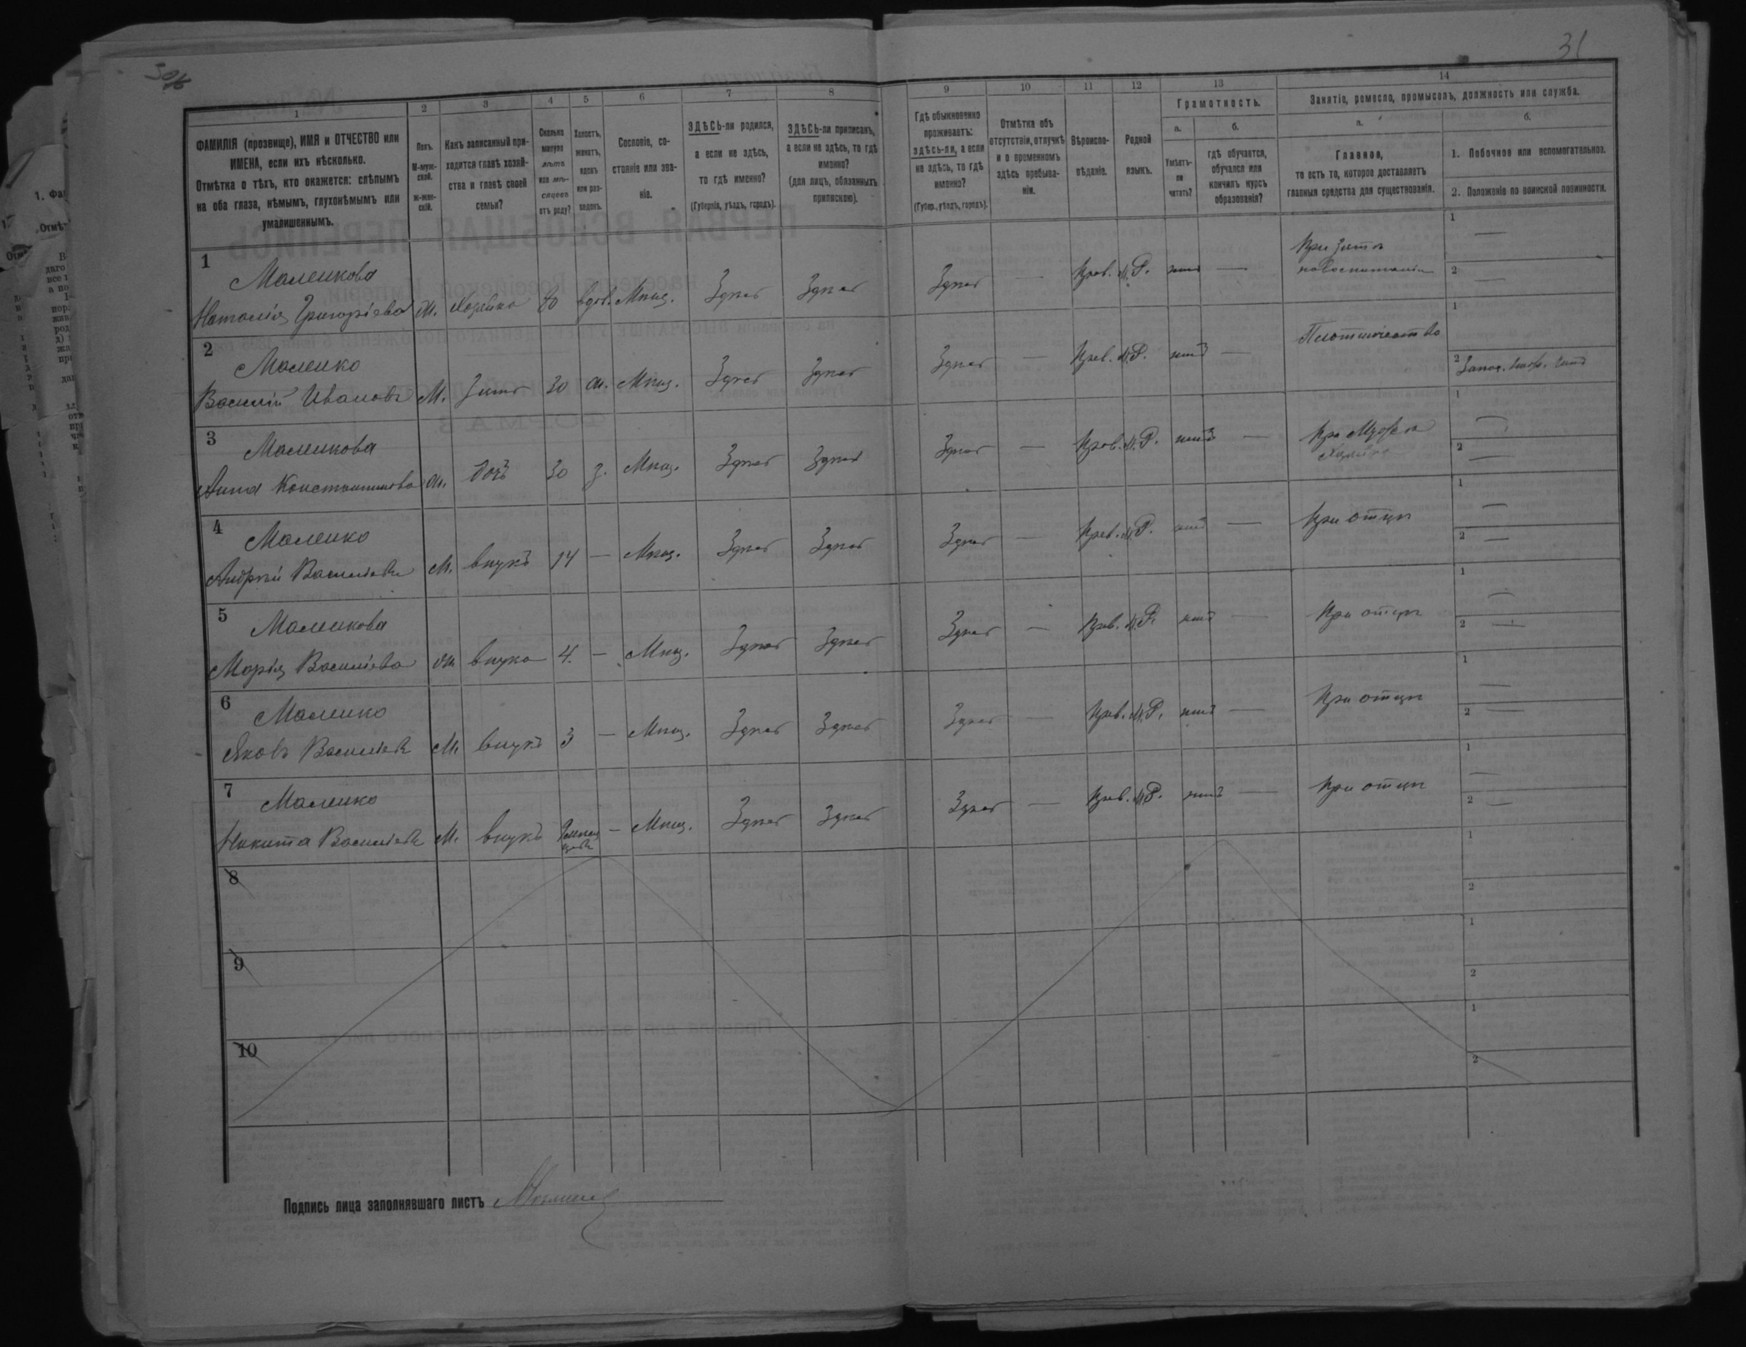 31
1 2 3 4 5 6 7 8 9 10 11 12 13 14
ФАМИЛІЯ (прозвище), ИМЯ и ОТЧЕСТВО или
ИМЕНА, если ихъ нѣсколько.
Отмѣтка о тѣхъ, кто окажется: слѣпымъ
на оба глаза, нѣмымъ, глухонѣмымъ или
умалишеннымъ.
Полъ.
М-муж-
ской.
ж-жен-
скій.
Какъ записанный при-
ходится главѣ хозяй-
ства и главѣ своей
семьи?
Сколько
минуло
лѣтъ
или мѣ-
сяцевъ
отъ роду?
Холостъ,
женатъ,
вдовъ
или раз-
веденъ.
Сословіе, со-
стояніе или зва-
ніе.
ЗДѢСЬ-ли родился,
а если не здѣсь,
то гдѣ именно?
(Губернія, уѣздъ, городъ).
ЗДѢСЬ-ли приписанъ,
а если не здѣсь, то гдѣ
именно?
(для лицъ, обязанныхъ
припискою).
Гдѣ обыкновенно
проживаетъ:
здѣсь-ли, а если
не здѣсь, то гдѣ
именно?
(Губер., уѣздъ, городъ).
Отмѣтка объ
отсутствіи, отлучкѣ
и о временномъ
здѣсь пребыва-
ніи.
Вѣроиспо-
вѣданіе.
Родной
языкъ.
Грамотность.
а. б.
Умѣетъ-
ли
читать?
гдѣ обучается,
обучался или
кончилъ курсъ
образованія?
Занятіе, ремесло, промыселъ, должность или служба.
а. б.
Главное,
то есть то, которое доставляетъ
главныя средства для существованія.
1. Побочное или вспомогательное.
2. Положеніе по воинской повинности.
1 Маленкова
Наталія Григорьева ж. 60 вдов. Мѣщ. Здѣсь Здѣсь Здѣсь — Прав. М.Р. —
При зятѣ
1 —
2 —
2 Маленко
Василій Ивановъ М. Зять 30 ж. Мѣщ. Здѣсь Здѣсь Здѣсь — Прав. М.Р. нѣтъ —
1
2
3 Маленкова
Анна Константинова ж. дочь 30 з. Мѣщ. Здѣсь Здѣсь Здѣсь — Прав. М.Р. нѣтъ —
При мужѣ
1 —
2 —
4 Маленко
Андрей Васильевъ М. внукъ 14 — Мѣщ. Здѣсь Здѣсь Здѣсь — Прав. М.Р. нѣтъ — При отцѣ
1 —
2 —
5 Маленкова
Марія Васильева ж. внука 4 — Мѣщ. Здѣсь Здѣсь Здѣсь — Прав. М.Р. нѣтъ — При отцѣ
1 —
2 —
6 Маленко
Яковъ Васильевъ М. внукъ 3 — Мѣщ. Здѣсь Здѣсь Здѣсь — Прав. М.Р. нѣтъ — При отцѣ
1 —
2 —
7 Маленко
Никита Васильевъ М. внукъ — Мѣщ. Здѣсь Здѣсь Здѣсь — Прав. М.Р. нѣтъ — При отцѣ
1 —
2 —
8
1
2
9
1
2
10
1
2
Подпись лица заполнявшаго листъ